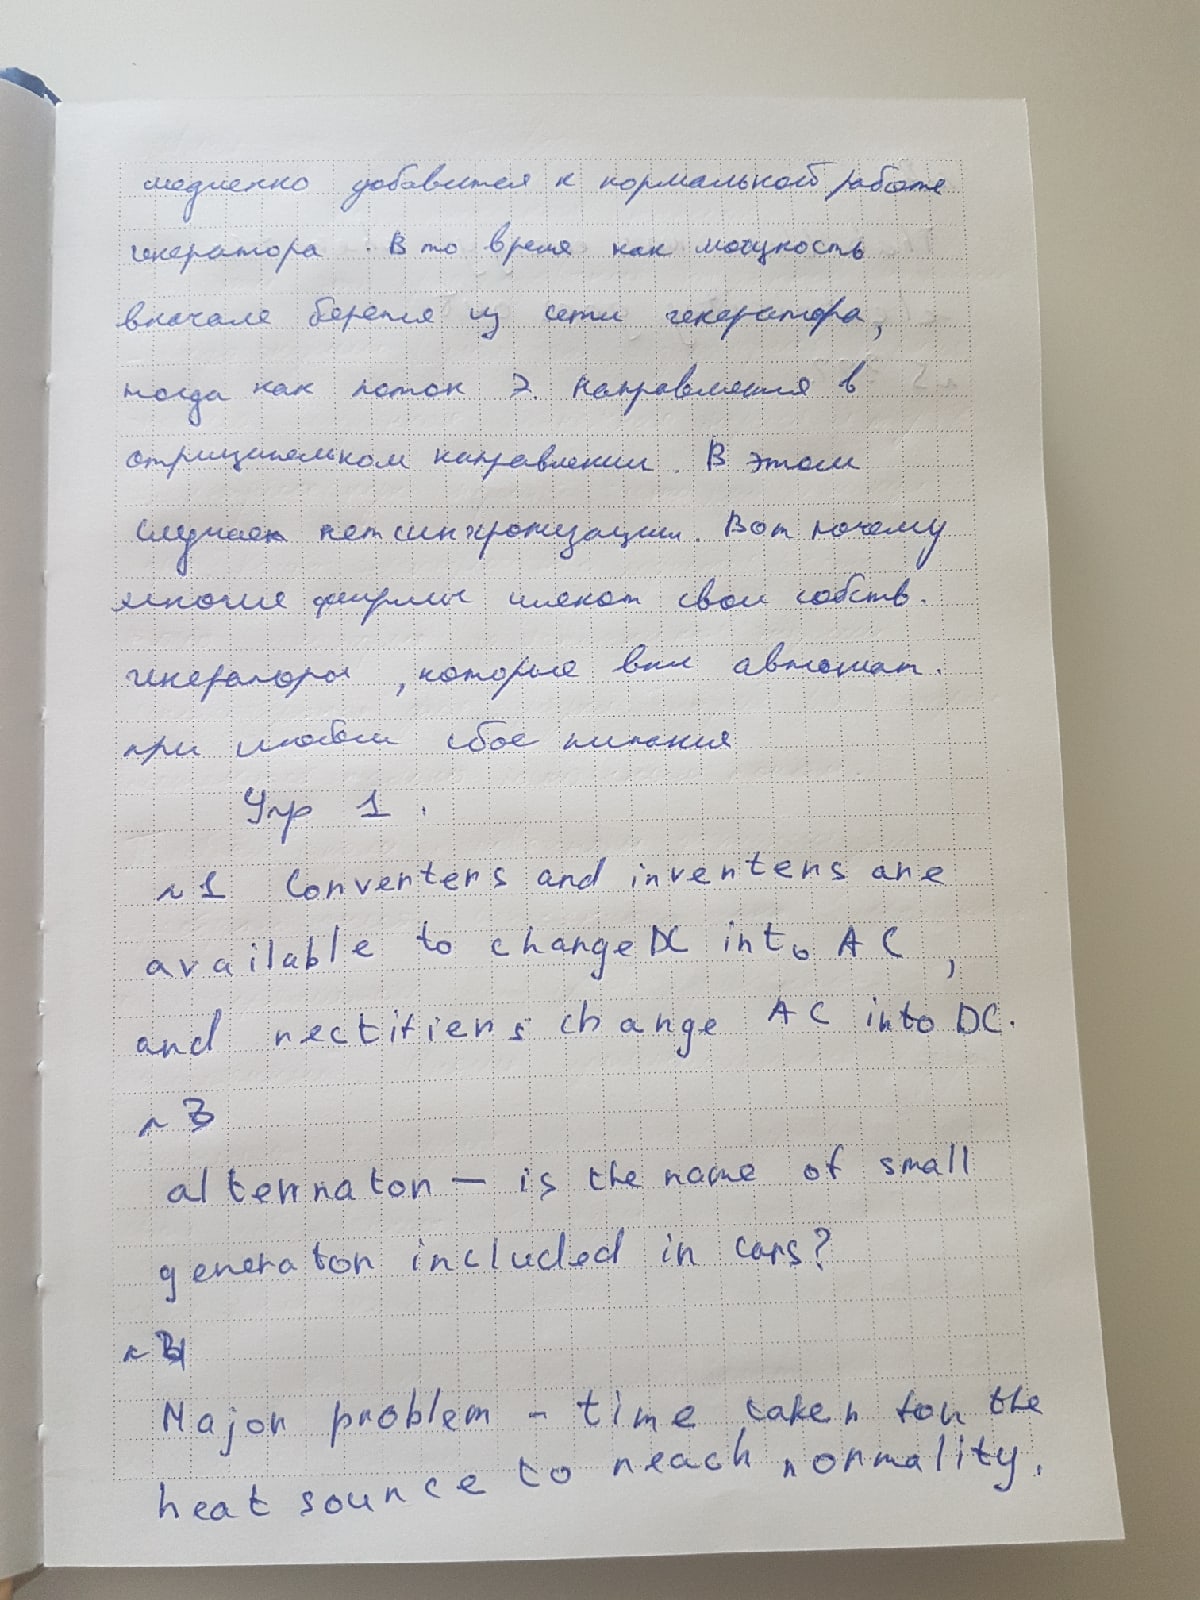 медленно добавится к нормальной работе
генератора. В то время как мощность
вначале берется из сети генератора,
тогда как поток э. направляется в
отрицательном направлении. В этом
случает нет синхронизации. Вот почему
многие фирмы имеют свои собств.
генераторы, которые вкл автомат.
при любом сбое питания
Упр 1.
~1 Converters and inventers are
available to change DC into AC,
and rectifiers change AC into DC.
~3
alternator — is the name of small
generator included in cars?
~
Major problem - time taken for the
heat source to reach normality.